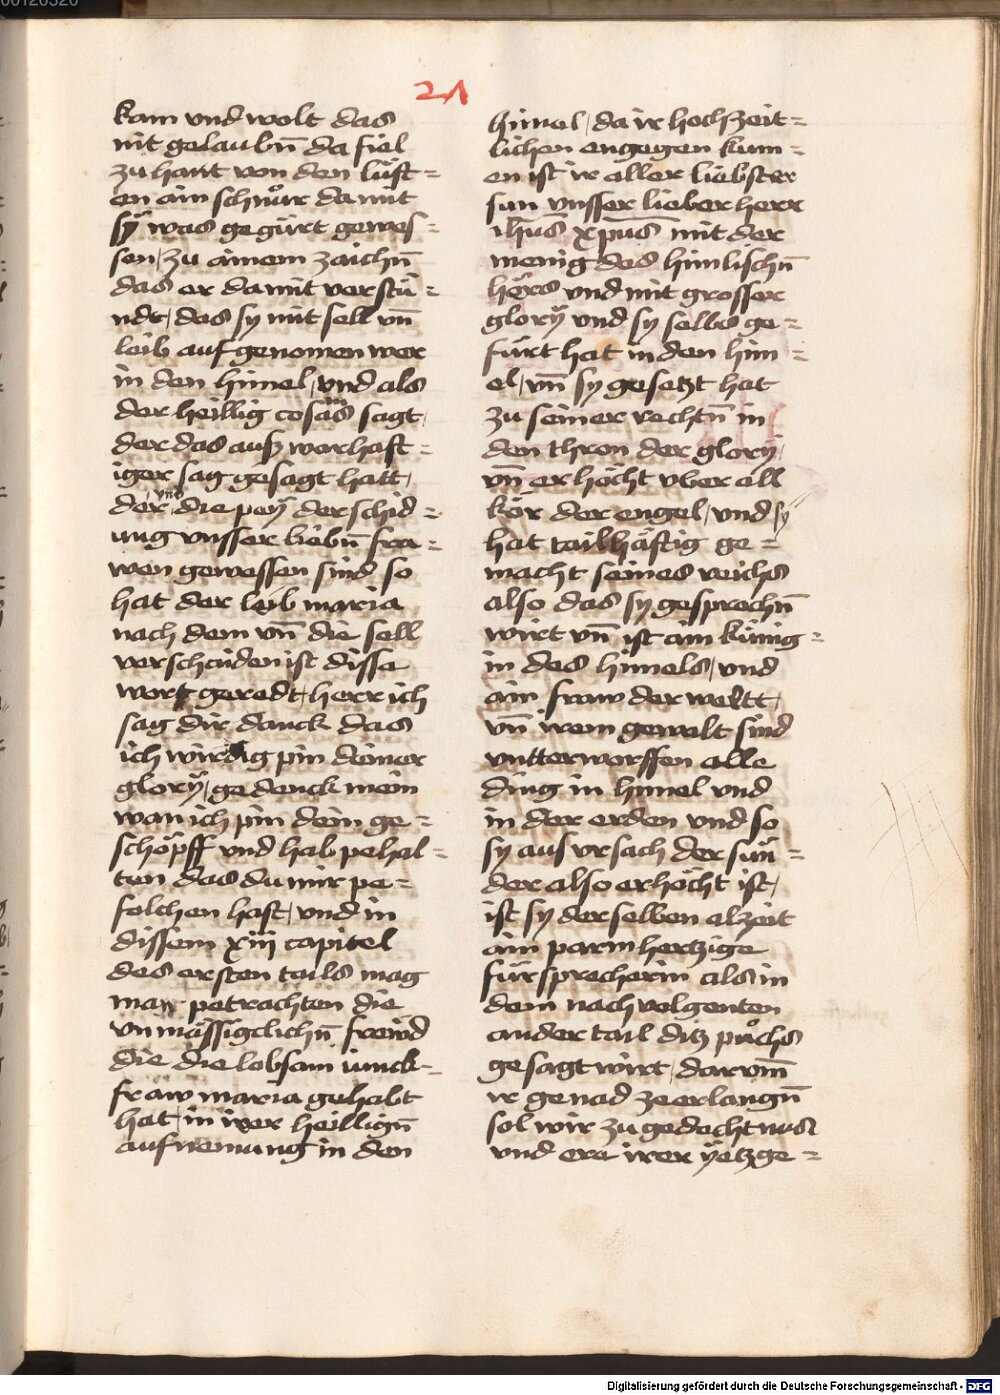 21
kam vnd wolt das
nit gelaubn̄ da fiel
zu hant von den lüft=
en ain schnuͦr da mit
sÿ was gegürt gewes=
sen / zu ainem zaichn̄
das er da mit verstü=
ndt / das sy mit sell vn̄
leib auf genomen wer
in den himel / vnd als
der heillig cosmas sagt /
der das auß warhaft=
iger sag gesagt hatt /
der vnd die peÿ der schid=
ung vnsser liebn̄ fra=
wen gewessen sind so
hat der leib maria
nach dem vn̄ die sell
verschaiden ist disse
wort geredt / herr ich
sag dir danck das
ich wirdig pin deiner
glorÿ / gedenck mein
wan ich pin dein ge=
schöpff vnd hab pehal=
ten das du mir pe=
folchen hast / vnd in
dissem xiij capitel
des ersten tails mag
man petrachten die
vnmässigclichn̄ frewd
die die lobsam iunck=
fraw maria gehabt
hat / in irer heillign̄
aufnemung in den
himel / da ir hochzeit=
lichen engegen kum=
en ist ir aller liebster
sun vnsser lieber herr
ihus̄ xpus̄ mit der
menig des himlischn̄
hers vnd mit grosser
glorÿ vnd sy selbs ge=
fürt hat in den him=
el / vn̄ sy gesetzt hat
zu seiner rechtn̄ in
den thron der glory /
vn̄ er höcht vber all
kör der engel / vnd sy
hat tailhäftig ge=
macht seines reichs
also das sy gesprochn̄
wirt vn̄ ist ain künig=
in des himels / vnd
ain fraw der weltt /
vn̄ irem gewalt sind
vntterworffen alle
ding in himel vnd
in der erden vnd so
sy aus vrsach der sün=
der also erhöcht ist /
ist sy der selben alzeit
ain parmhertzige
fürsprecherin als in
dem nach volgenten
ander tail ditz puͦchs
gesagt wirt / darvm̄
ir genad ze erlangn̄
sol wir zu gedechtnus
vnd ere irer yetzge=
Digitalisierung gefördert durch die Deutsche Forschungsgemeinschaft - DFG